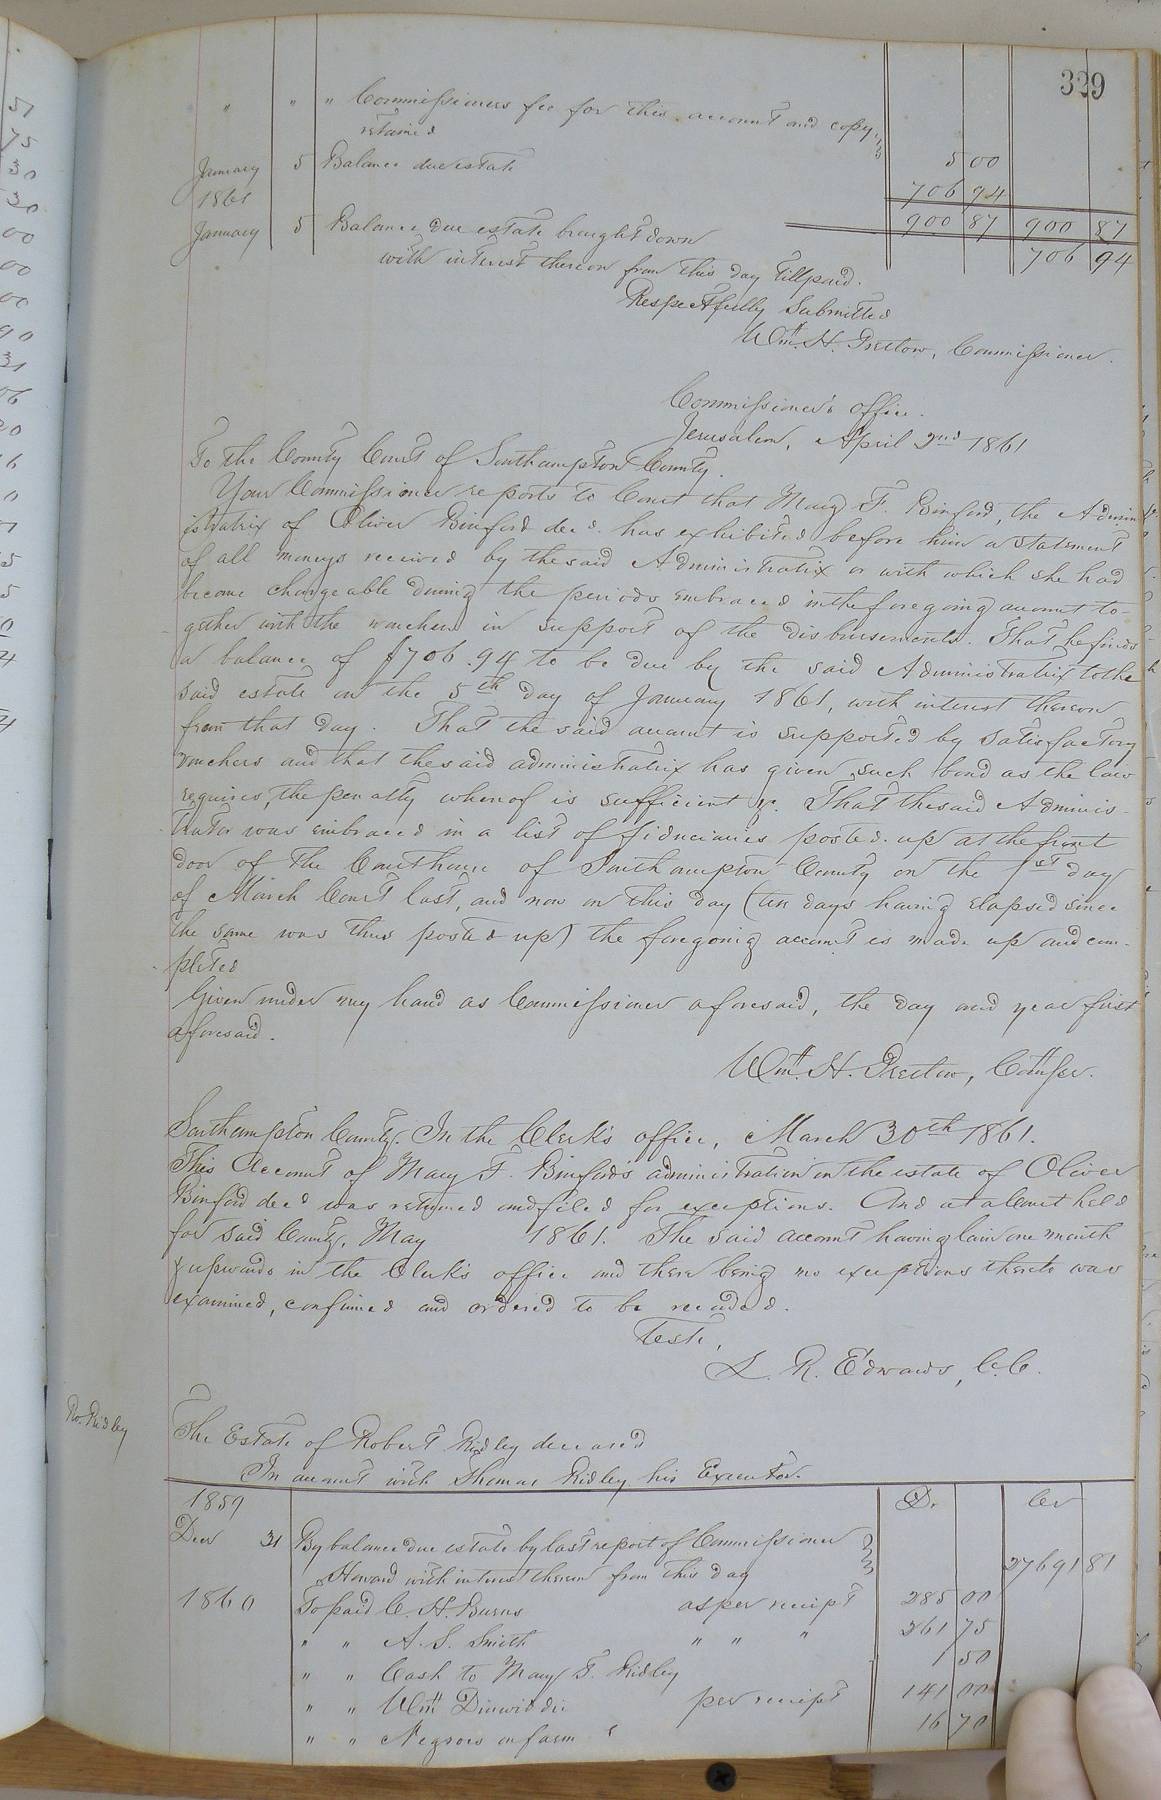 329
" " " Commissioners fee for this account and copy
retained 5 00
January 5 Balance due estate 706 94
1861 900 87 900 87
January 5 Balance due estate brought down 706 94
with interest thereon from this day till paid.
Respectfully Submitted
Wm. H. Pretlow, Commissioner.
Commissioner's office.
Jerusalem, April 2nd 1861
To the County Court of Southampton County.
Your Commissioner reports to Court that Mary F. Binford, the Admin
istratrix of Oliver Binford decd. has exhibited before him a statement
of all moneys received by the said Administratrix or with which she had
become chargeable during the periods embraced in the foregoing account to-
gether with the vouchers in support of the disbursements. That he finds
a balance of $706.94 to be due by the said Administratrix to the
said estate on the 5th day of January 1861, with interest thereon
from that day. That the said account is supported by satisfactory
vouchers and that the said administratrix has given such bond as the law
requires, the penalty whereof is sufficient &c. That the said Adminis-
trator was embraced in a list of fiduciaries posted up at the front
door of the Courthouse of Southampton County on the 1st day
of March Court last, and now on this day (ten days having elapsed since
the same was thus posted up) the foregoing account is made up and com-
pleted
Given under my hand as Commissioner aforesaid, the day and year first
aforesaid.
Wm. H. Pretlow, Commser.
Southampton County. In the Clerk's office, March 30th 1861.
This Account of Mary F. Binford's administration on the estate of Oliver
Binford decd was returned and filed for exceptions. And at a Court held
for said County, May 1861. The said account having lain one month
& upwards in the Clerk's office and there being no exceptions thereto was
examined, confirmed and ordered to be recorded.
Teste,
L. R. Edwards, C.C.
Ro. Ridley
The Estate of Robert Ridley deceased
In account with Thomas Ridley his Executor.
1859 Dr Cr
Decr 31 By balance due estate by last report of Commissioner
Howard with interest thereon from this day 27691 81
1860 To paid C. H. Burns as per receipt 285 00
" " A. S. Smith " " " 361 75
" " Cash to Mary T. Ridley 1 50
" " Wm Dinwiddie per receipt 141 00
" " Negroes on farm 16 70